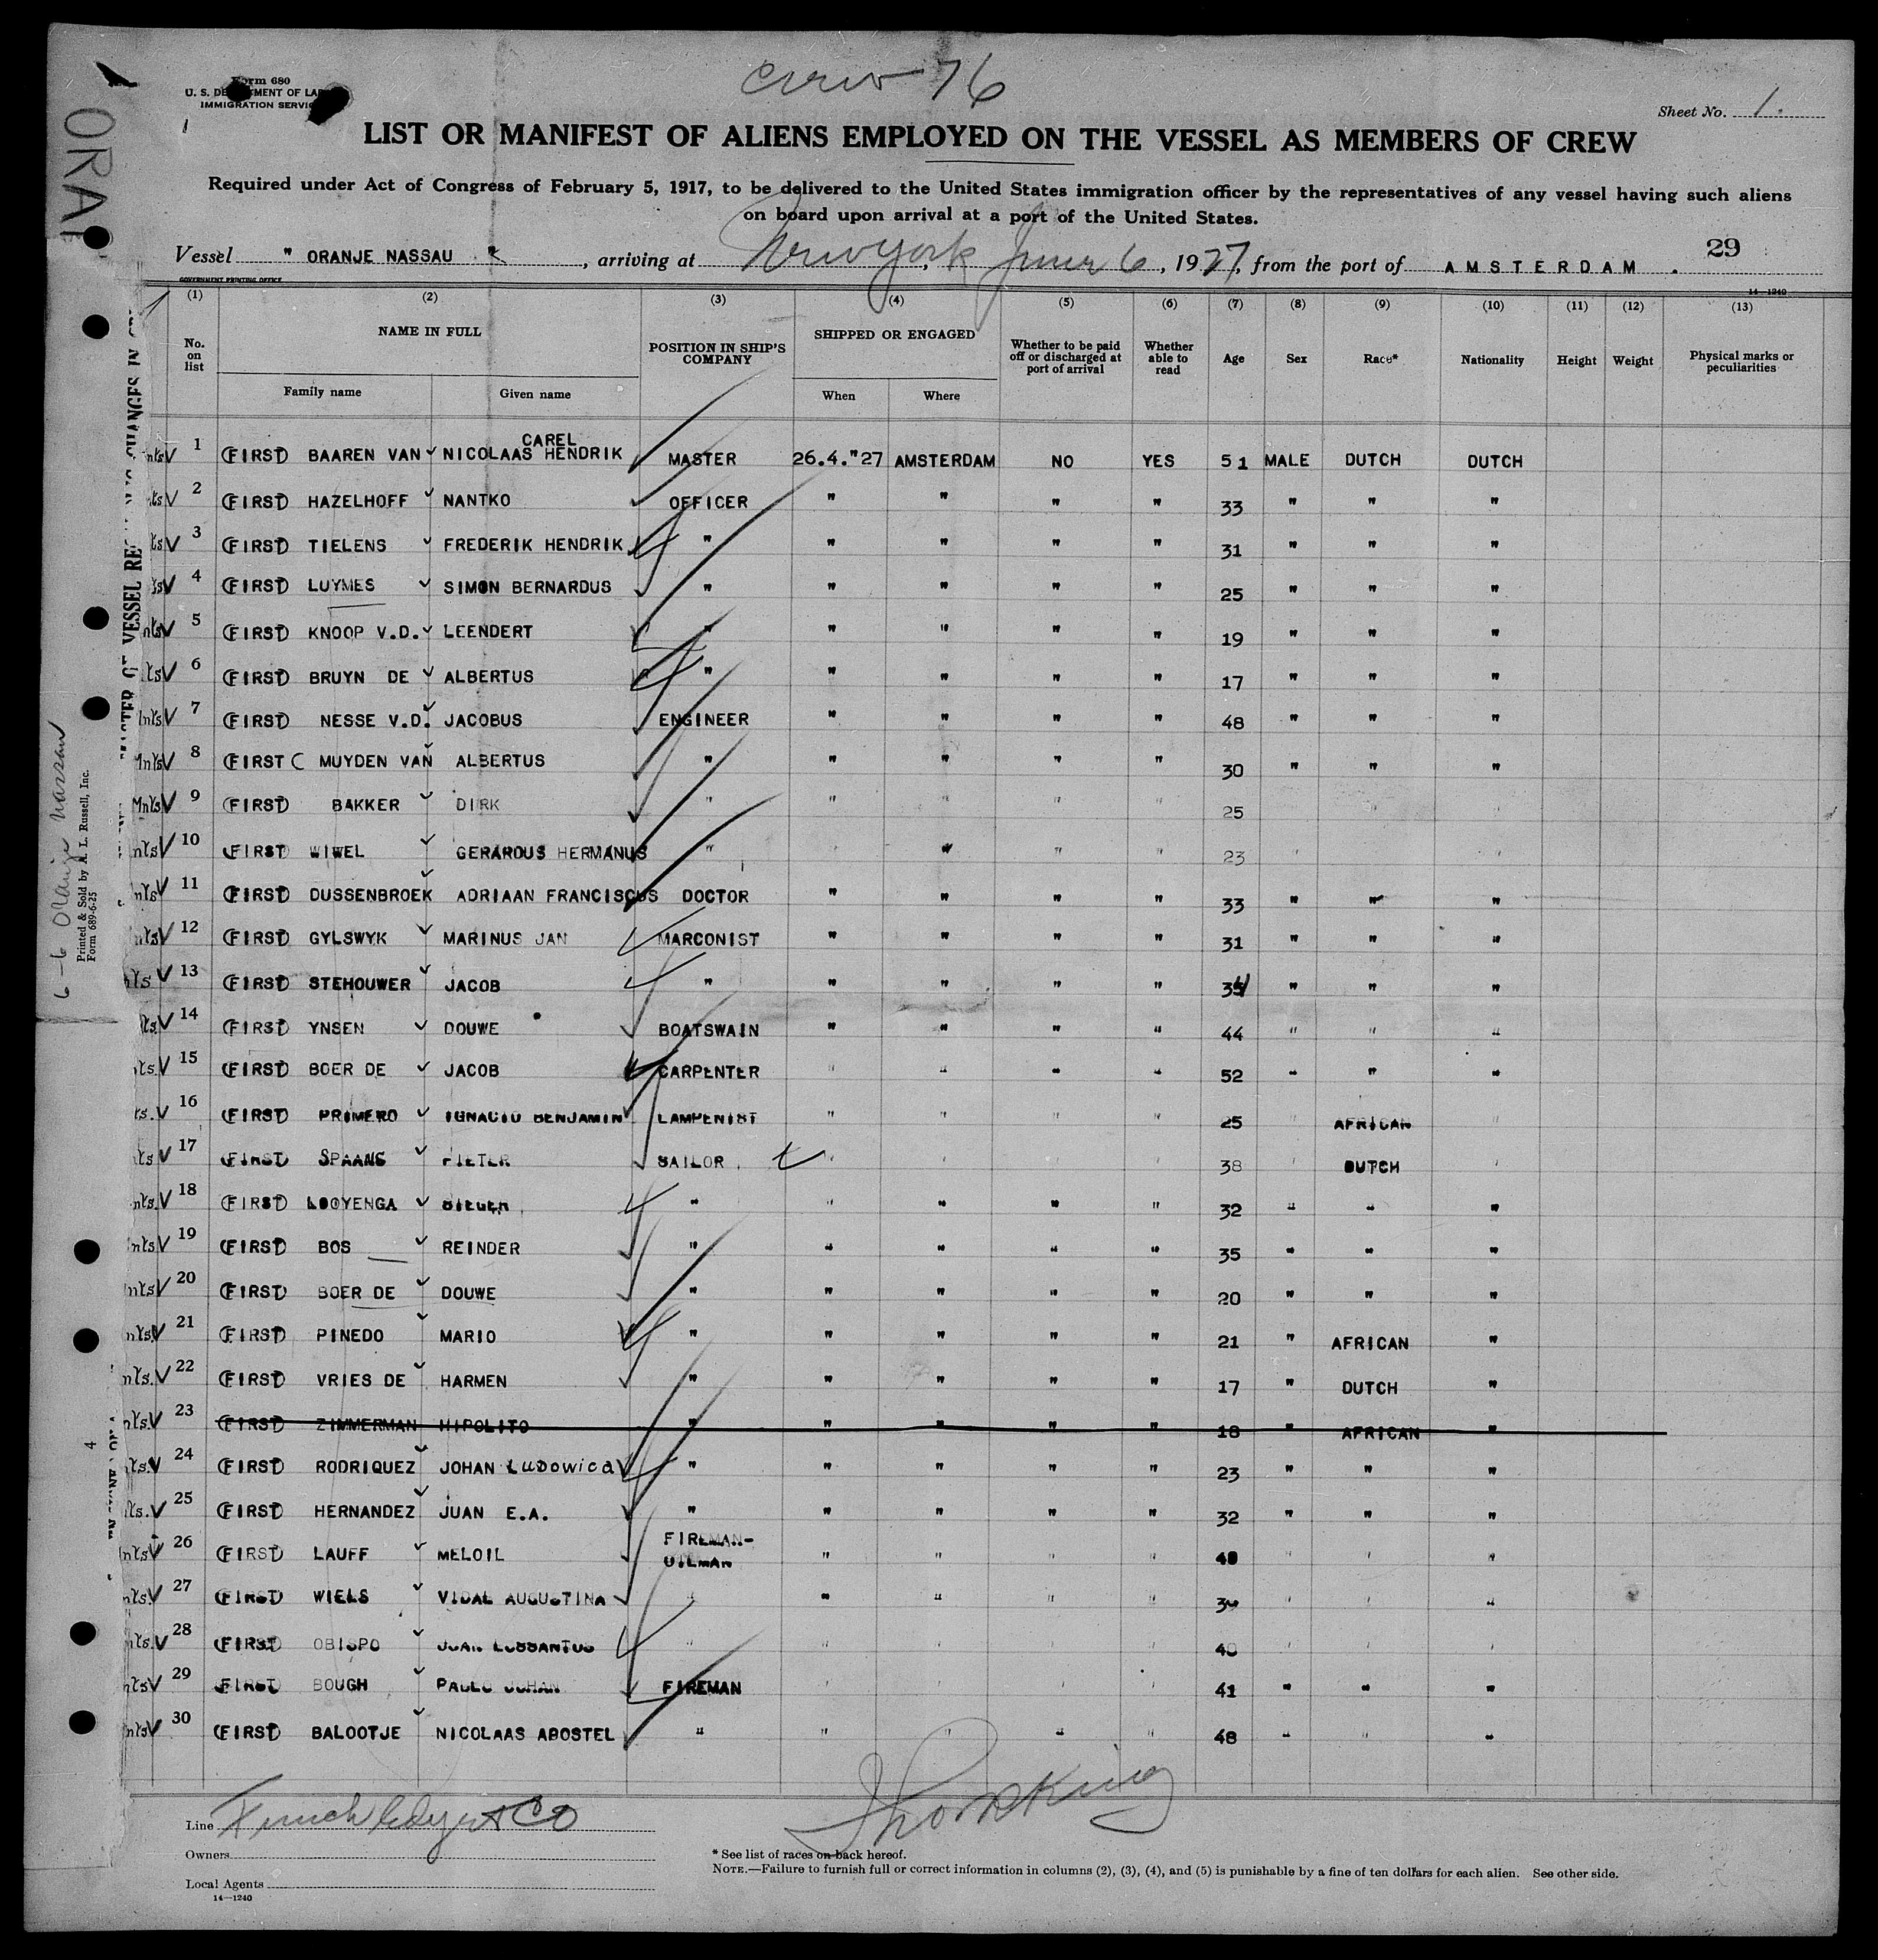 crew 76
Form 680
U. S. DEPARTMENT OF LABOR
IMMIGRATION SERVICE
Sheet No. 1.
ORA
LIST OR MANIFEST OF ALIENS EMPLOYED ON THE VESSEL AS MEMBERS OF CREW
Required under Act of Congress of February 5, 1917, to be delivered to the United States immigration officer by the representatives of any vessel having such aliens
on board upon arrival at a port of the United States.
29
Vessel " ORANJE NASSAU ", arriving at New York, June 6, 1927, from the port of AMSTERDAM.
GOVERNMENT PRINTING OFFICE
14—1240
(1) (2) (3) (4) (5) (6) (7) (8) (9) (10) (11) (12) (13)
No. on list NAME IN FULL Family name Given name POSITION IN SHIP'S COMPANY SHIPPED OR ENGAGED When Where Whether to be paid off or discharged at port of arrival Whether able to read Age Sex Race* Nationality Height Weight Physical marks or peculiarities
1 (FIRST) BAAREN VAN NICOLAAS CAREL HENDRIK MASTER 26.4."27 AMSTERDAM NO YES 51 MALE DUTCH DUTCH
2 (FIRST) HAZELHOFF NANTKO OFFICER " " " " 33 " " "
3 (FIRST) TIELENS FREDERIK HENDRIK " " " " " 31 " " "
4 (FIRST) LUYMES SIMON BERNARDUS " " " " " 25 " " "
5 (FIRST) KNOOP V.D. LEENDERT " " " " " 19 " " "
6 (FIRST) BRUYN DE ALBERTUS " " " " " 17 " " "
7 (FIRST) NESSE V.D. JACOBUS ENGINEER " " " " 48 " " "
8 (FIRST ( MUYDEN VAN ALBERTUS " " " " " 30 " " "
9 (FIRST) BAKKER DIRK " " " " " 25 " "
10 (FIRST) WIWEL GERARDUS HERMANUS " " " " 23 " " "
11 (FIRST) DUSSENBROEK ADRIAAN FRANCISCUS DOCTOR " " " " 33 " " "
12 (FIRST) GYLSWYK MARINUS JAN MARCONIST " " " " 31 " " "
13 (FIRST) STEHOUWER JACOB " " " " " 34 " " "
14 (FIRST) YNSEN DOUWE BOATSWAIN " " " " 44 " " "
15 (FIRST) BOER DE JACOB CARPENTER " " " " 52 " " "
16 (FIRST) PRIMERO IGNACIO BENJAMIN LAMPENIST " " " " 25 " AFRICAN "
17 (FIRST) SPAANS PIETER SAILOR " " " " 38 " DUTCH "
18 (FIRST) LOOYENGA " " " " " 32 " " "
19 (FIRST) BOS REINDER " " " " " 35 " " "
20 (FIRST) BOER DE DOUWE " " " " " 20 " " "
21 (FIRST) PINEDO MARIO " " " " " 21 " AFRICAN "
22 (FIRST) VRIES DE HARMEN " " " " " 17 " DUTCH "
23 (FIRST) ZIMMERMAN HIPOLITO " " " " " 18 " AFRICAN "
24 (FIRST) RODRIQUEZ JOHAN Ludowica " " " " " 23 " " "
25 (FIRST) HERNANDEZ JUAN E.A. " " " " " 32 " " "
26 (FIRST) LAUFF MELOIL FIREMAN-OILMAN " " " " " " "
27 (FIRST) WIELS VIDAL AUGUSTINA " " " " " " " "
28 (FIRST) OBISPO JUAN LOSSANTOS " " " " " 40 " " "
29 (FIRST) BOUGH PABLO JOHAN FIREMAN " " " " 41 " " "
30 (FIRST) BALOOTJE NICOLAAS APOSTEL " " " " " 48 " " "
6-6 Oranje Nassau
Printed & Sold by A. L. Russell, Inc.
Form 689-6-25
4
Line
Owners
Local Agents
14—1240
* See list of races on back hereof.
NOTE.—Failure to furnish full or correct information in columns (2), (3), (4), and (5) is punishable by a fine of ten dollars for each alien. See other side.